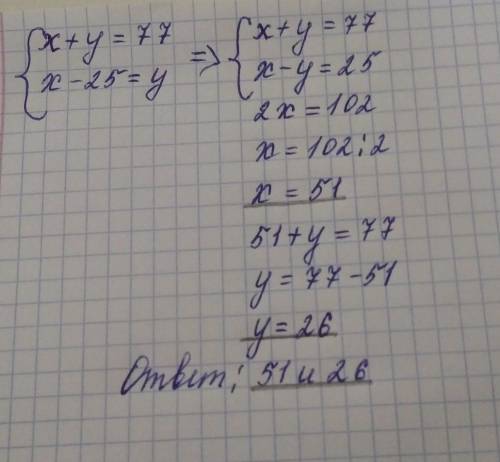 x+y=77 => x+y=77
x-25=y x-y=25
2x=102
x=102:2
x=51
51+y=77
y=77-51
y=26
Ответ: 51 и 26